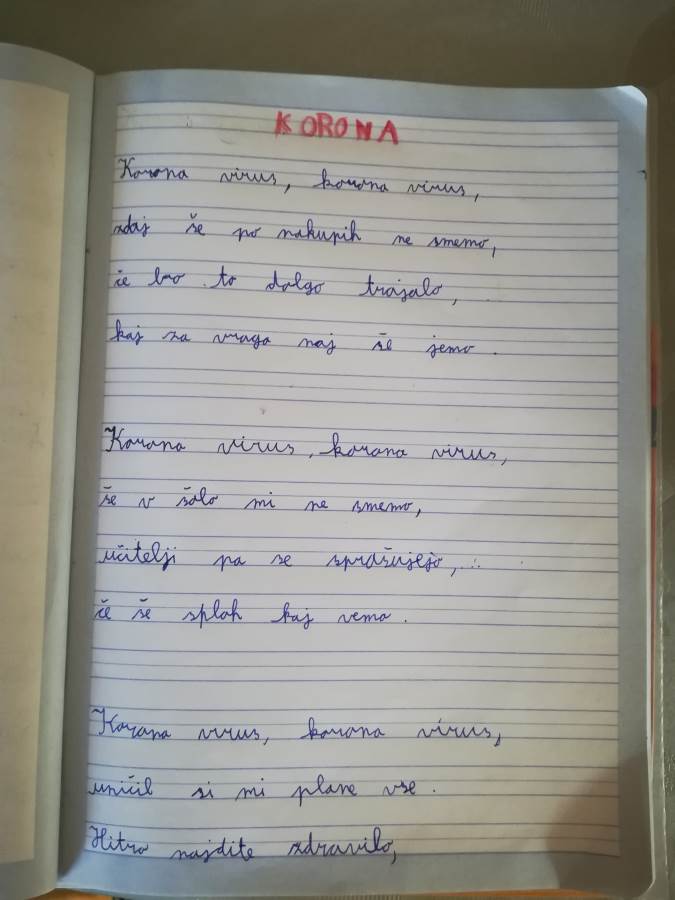 KORONA
Korona virus, korona virus,
zdaj še po nakupih ne smemo,
če bo to dolgo trajalo,
kaj za vraga naj še jemo.
Korona virus, korona virus,
še v šolo mi ne smemo,
učitelji pa se sprašujejo,
če še sploh kaj vemo.
Korona virus, korona virus,
uničil si mi plane vse.
Hitro najdite zdravilo,